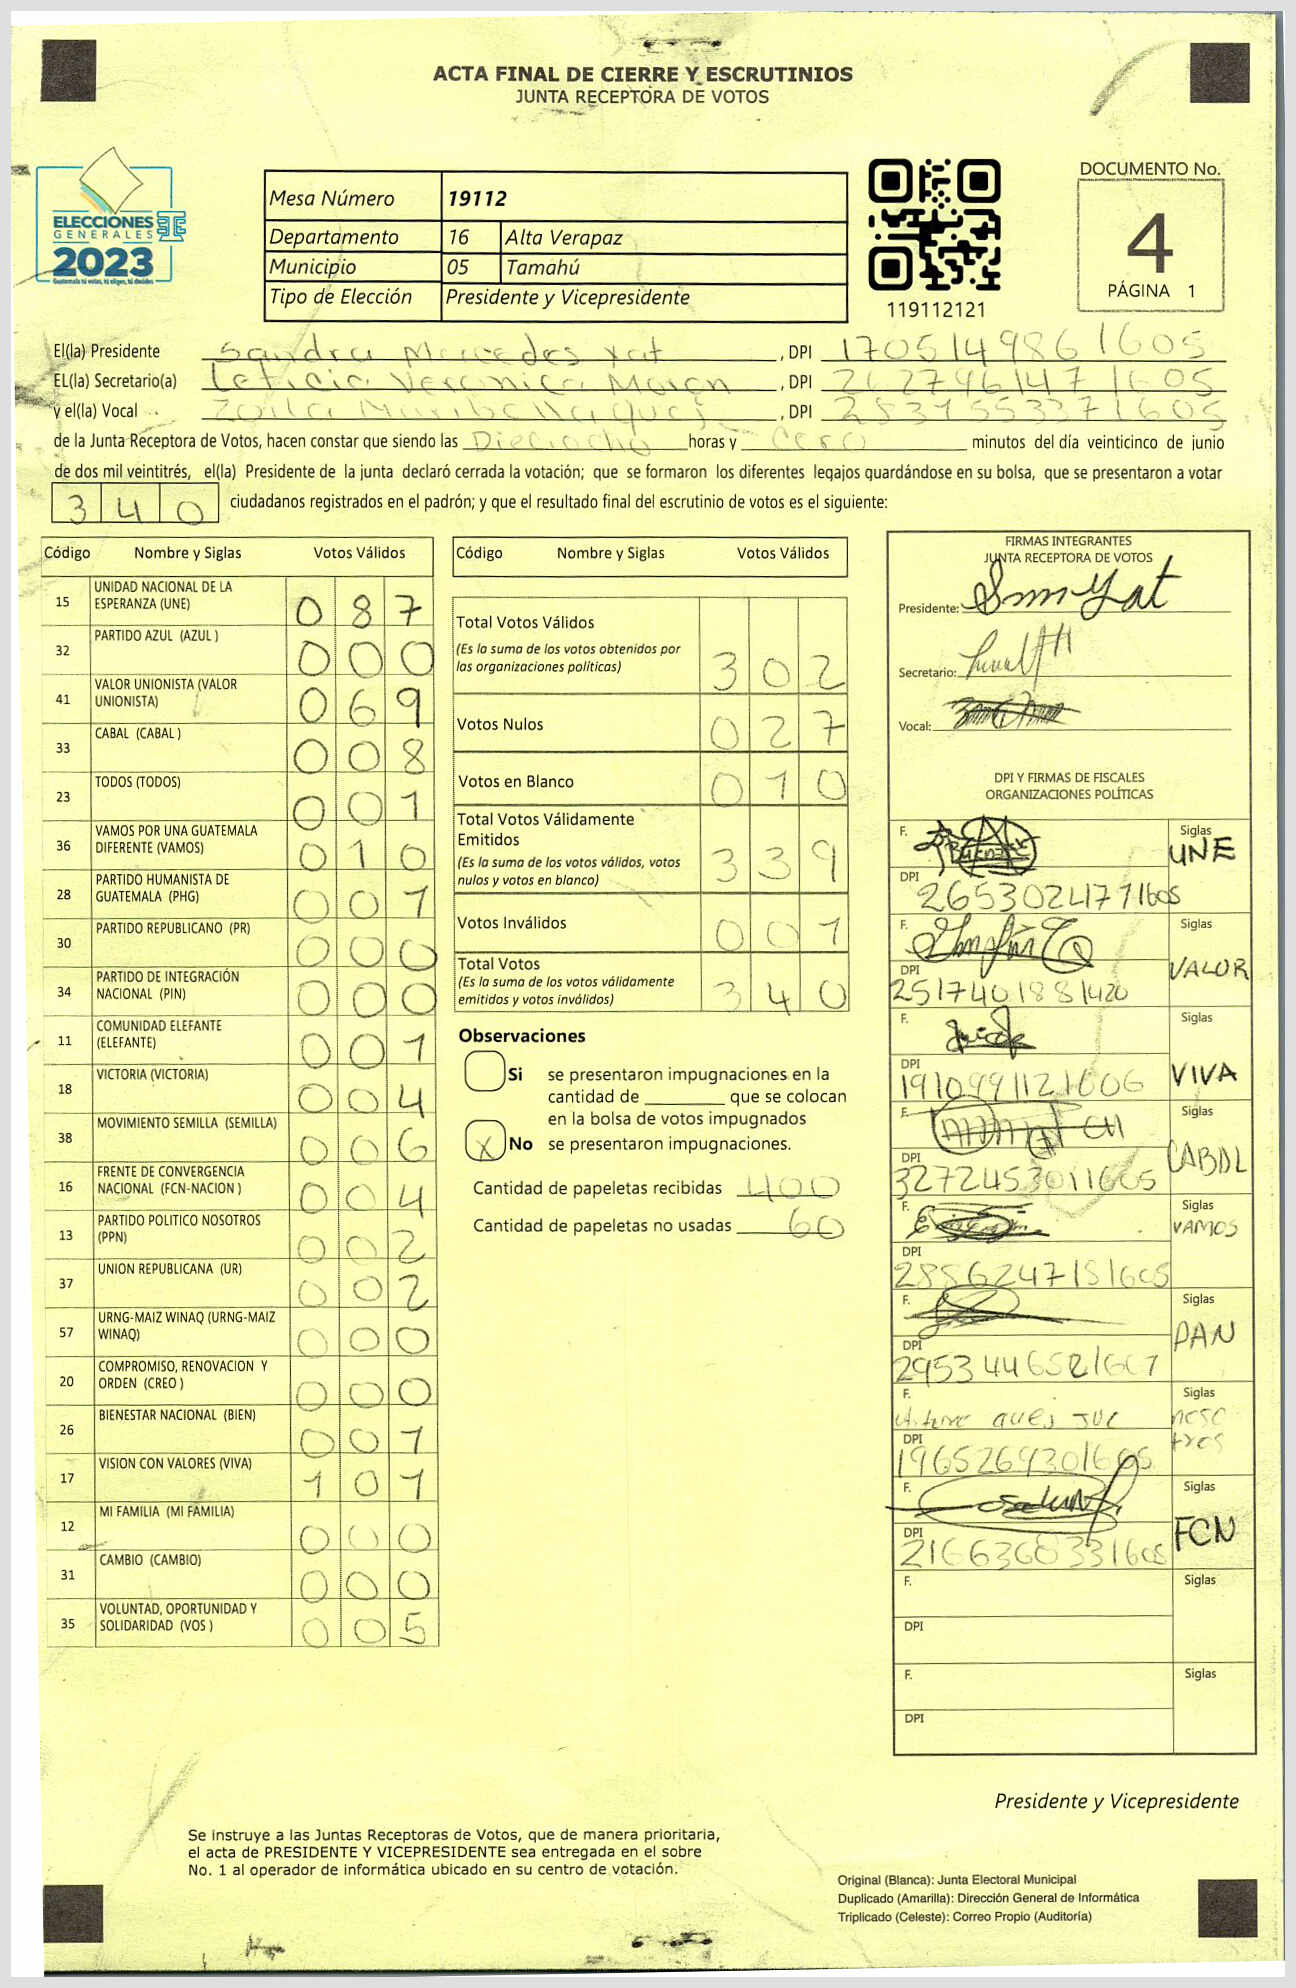 ACTA FINAL DE CIERRE Y ESCRUTINIOS
JUNTA RECEPTORA DE VOTOS
ELECCIONES
GENERALES
2023
Guatemala tú votas, tú eliges, tú decides
Mesa Número 19112
Departamento 16 Alta Verapaz
Municipio 05 Tamahú
Tipo de Elección Presidente y Vicepresidente
119112121
DOCUMENTO No.
4
PÁGINA 1
El(la) Presidente Sandra Mercedes Xat , DPI 1705149861605
EL(la) Secretario(a) Leticia Veronica Moran , DPI 2627961471605
y el(la) Vocal Zoila Maribel , DPI 2837553371605
de la Junta Receptora de Votos, hacen constar que siendo las Dieciocho horas y cero minutos del día veinticinco de junio
de dos mil veintitrés, el(la) Presidente de la junta declaró cerrada la votación; que se formaron los diferentes legajos guardándose en su bolsa, que se presentaron a votar
340 ciudadanos registrados en el padrón; y que el resultado final del escrutinio de votos es el siguiente:
Código Nombre y Siglas Votos Válidos
15 UNIDAD NACIONAL DE LA ESPERANZA (UNE) 087
32 PARTIDO AZUL (AZUL ) 000
41 VALOR UNIONISTA (VALOR UNIONISTA) 069
33 CABAL (CABAL ) 008
23 TODOS (TODOS) 001
36 VAMOS POR UNA GUATEMALA DIFERENTE (VAMOS) 010
28 PARTIDO HUMANISTA DE GUATEMALA (PHG) 001
30 PARTIDO REPUBLICANO (PR) 000
34 PARTIDO DE INTEGRACIÓN NACIONAL (PIN) 000
11 COMUNIDAD ELEFANTE (ELEFANTE) 001
18 VICTORIA (VICTORIA) 004
38 MOVIMIENTO SEMILLA (SEMILLA) 006
16 FRENTE DE CONVERGENCIA NACIONAL (FCN-NACION ) 004
13 PARTIDO POLITICO NOSOTROS (PPN) 002
37 UNION REPUBLICANA (UR) 002
57 URNG-MAIZ WINAQ (URNG-MAIZ WINAQ) 000
20 COMPROMISO, RENOVACION Y ORDEN (CREO ) 000
26 BIENESTAR NACIONAL (BIEN) 001
17 VISION CON VALORES (VIVA) 101
12 MI FAMILIA (MI FAMILIA) 000
31 CAMBIO (CAMBIO) 000
35 VOLUNTAD, OPORTUNIDAD Y SOLIDARIDAD (VOS ) 005
Código Nombre y Siglas Votos Válidos
Total Votos Válidos
(Es la suma de los votos obtenidos por
las organizaciones políticas) 302
Votos Nulos 027
Votos en Blanco 010
Total Votos Válidamente
Emitidos
(Es la suma de los votos válidos, votos
nulos y votos en blanco) 339
Votos Inválidos 001
Total Votos
(Es la suma de los votos válidamente
emitidos y votos inválidos) 340
Observaciones
Si se presentaron impugnaciones en la
cantidad de ________ que se colocan
en la bolsa de votos impugnados
X No se presentaron impugnaciones.
Cantidad de papeletas recibidas 400
Cantidad de papeletas no usadas 60
FIRMAS INTEGRANTES
JUNTA RECEPTORA DE VOTOS
Presidente:
Secretario:
Vocal:
DPI Y FIRMAS DE FISCALES
ORGANIZACIONES POLÍTICAS
F. Siglas UNE
DPI 2653024771605
F. Siglas VALOR
DPI 2517401881420
F. Siglas VIVA
DPI 1910991121606
F. Siglas CABAL
DPI 3272453011605
F. Siglas VAMOS
DPI 2886247151605
F. Siglas PAN
DPI 2953446521607
F. Siglas nosotros
DPI 1965269301605
F. Siglas FCN
DPI 2166368331605
F. Siglas
DPI
F. Siglas
DPI
Presidente y Vicepresidente
Se instruye a las Juntas Receptoras de Votos, que de manera prioritaria,
el acta de PRESIDENTE Y VICEPRESIDENTE sea entregada en el sobre
No. 1 al operador de informática ubicado en su centro de votación.
Original (Blanca): Junta Electoral Municipal
Duplicado (Amarilla): Dirección General de Informática
Triplicado (Celeste): Correo Propio (Auditoría)